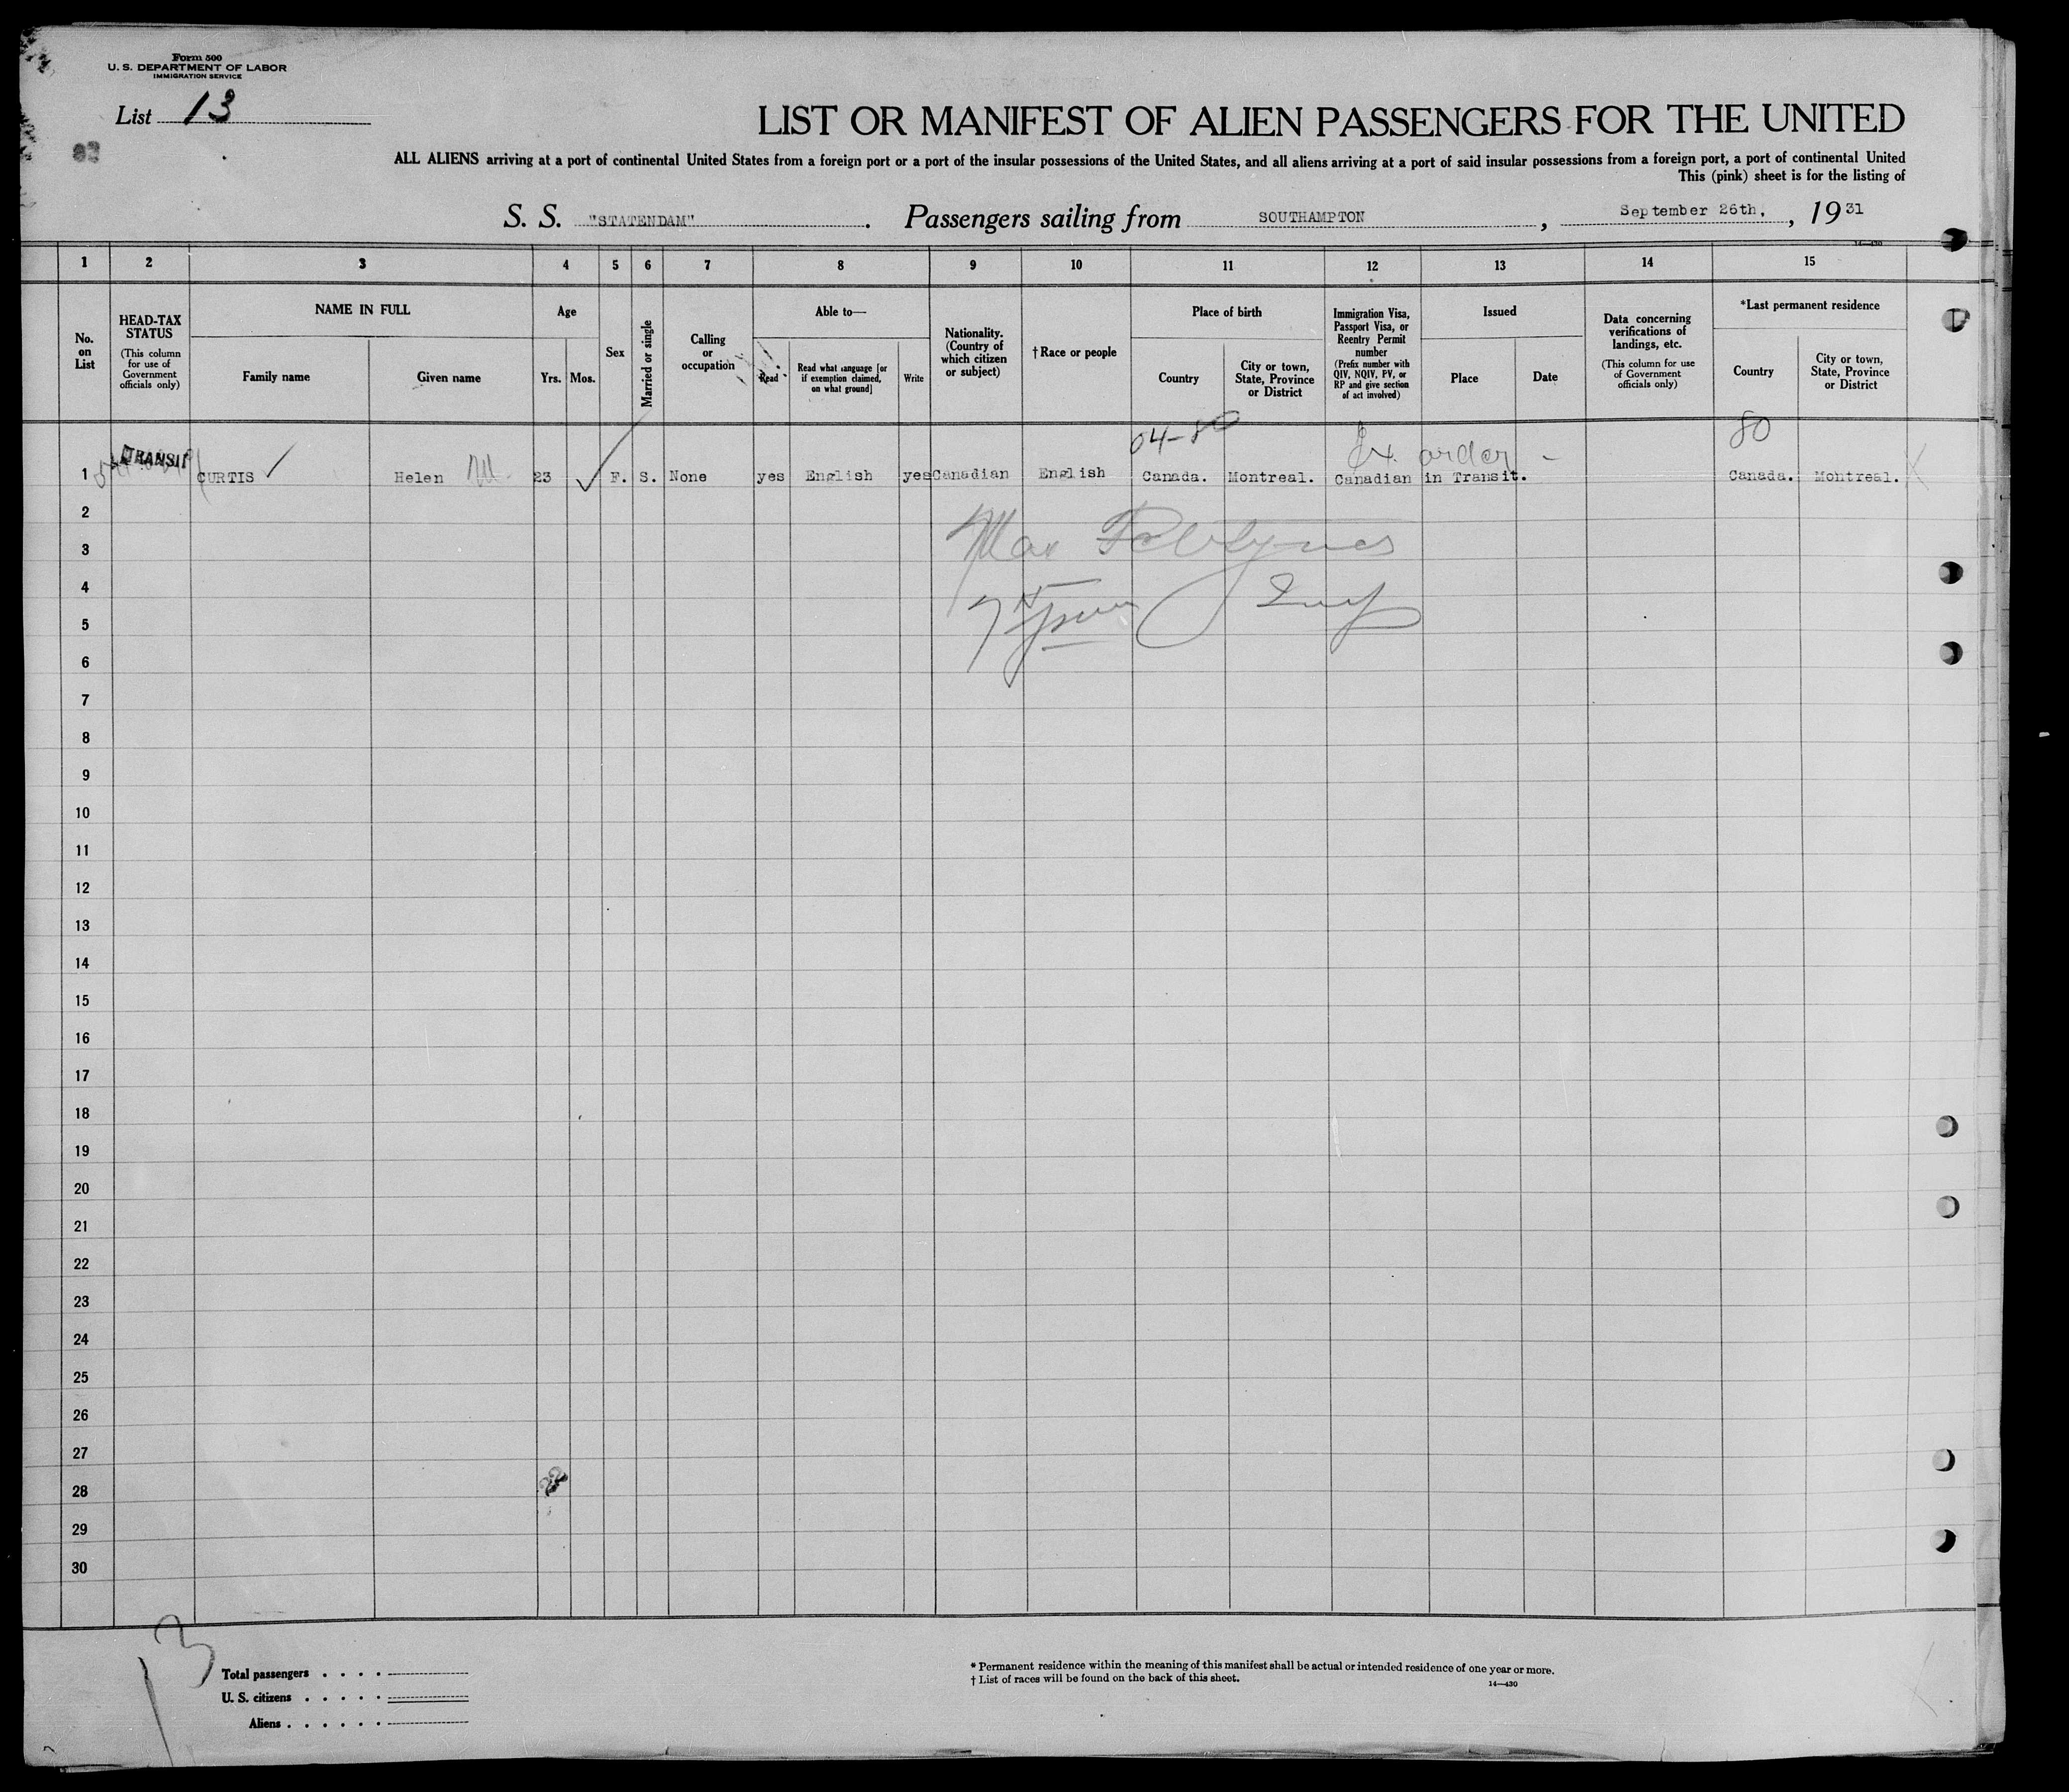 Form 500
U. S. DEPARTMENT OF LABOR
IMMIGRATION SERVICE
List 13
LIST OR MANIFEST OF ALIEN PASSENGERS FOR THE UNITED
ALL ALIENS arriving at a port of continental United States from a foreign port or a port of the insular possessions of the United States, and all aliens arriving at a port of said insular possessions from a foreign port, a port of continental United
This (pink) sheet is for the listing of
S. S. "STATENDAM". Passengers sailing from SOUTHAMPTON, September 26th, , 19 31
14—430
1 2 3 4 5 6 7 8 9 10 11 12 13 14 15
No. on List
HEAD-TAX STATUS
(This column for use of Government officials only)
NAME IN FULL
Family name
Given name
Age
Yrs. Mos.
Sex
Married or single
Calling or occupation
Able to—
Read
Read what language [or if exemption claimed, on what ground]
Write
Nationality. (Country of which citizen or subject)
† Race or people
Place of birth
Country
City or town, State, Province or District
Immigration Visa, Passport Visa, or Reentry Permit number
(Prefix number with QIV, NQIV, PV, or RP and give section of act involved)
Issued
Place
Date
Data concerning verifications of landings, etc.
(This column for use of Government officials only)
*Last permanent residence
Country
City or town, State, Province or District
04-80
80
order -
TRANSIT
1 CURTIS Helen M. 23 F. S. None yes English yes Canadian English Canada. Montreal. Canadian in Transit. Canada. Montreal.
2
3
4
5
6
7
8
9
10
11
12
13
14
15
16
17
18
19
20
21
22
23
24
25
26
27
28
29
30
13
Total passengers . . . .
U. S. citizens . . . . .
Aliens . . . . . .
* Permanent residence within the meaning of this manifest shall be actual or intended residence of one year or more.
† List of races will be found on the back of this sheet.
14—430